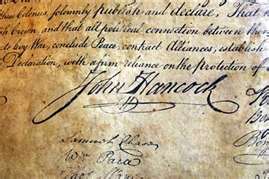 these Colonies, solemnly publish and declare, That
Crown, and that all political connection between them
levy War, conclude Peace, contract Alliances, establish
Declaration, with a firm reliance on the protection of
John Hancock
Samuel Chase
Wm Paca